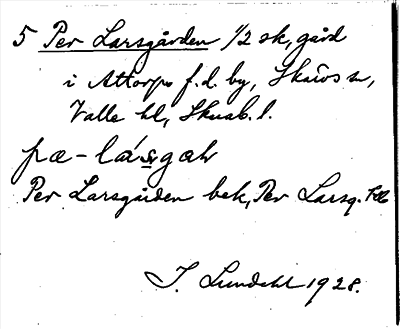 5 Per Larsgården 1/2 sk, gård
i Attorps f.d. by, Skärvs sn,
Valle hd, Skarab. l.
Per Larsgården bek, Per Larsg.
I. Lundahl 1928.